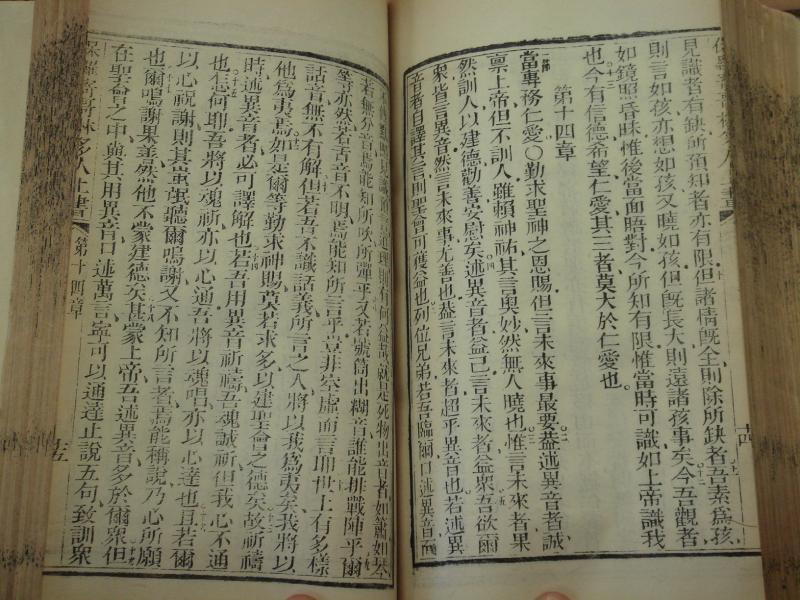 見識者有缺所預知者亦有限但諸情既全則除所缺者吾素爲孩
則言如孩亦想如孩又曉如孩但既長大則遠諸孩事矣今吾觀者
如鏡照昏昧惟後當面晤對今所知有限惟當時可識如上帝識我
也今有信德希望仁愛其三者莫大於仁愛也
第十四章
當專務仁愛〇勤求聖神之恩賜但言未來事最要葢述異音者誠
禀上帝但不訓人雖賴神祐其言奧妙然無人曉也惟言未來者果
然訓人以建德勸善安慰矣述異音者益己言未來者益衆吾欲爾
衆皆言異音然言未來事尤善也葢言未來者超乎異音也若述異
音者自譯其言則聖會可獲益也列位兄弟若吾臨爾口述異音而
若無分音焉能知所吹所彈乎又若號筒出糊音誰能排戰陣乎爾
等亦然若舌音不明焉能知所言乎豈非空虛而言耶世上有多樣
話音無不有解但若吾不識話義所言之人將以我爲夷矣我將以
他爲夷焉如是爾等勤求神賜莫若求多以建聖會之德矣故祈禱
時述異音者必可譯解也若吾用異音祈禱吾魂誠祈但我心不通
也怎何耶吾將以魂祈亦以心通吾將以魂唱亦以心達也且若爾
以心祝謝則其愚氓聽爾鳴謝又不知所言者焉能稱說乃心所願
也爾鳴謝果善然他不蒙建德矣甚蒙上帝吾述異音多於爾衆但
在聖會之中與其用異音口述萬言寧可以通達止說五句致訓衆
保羅寄哥林多人上書
第十四章
五